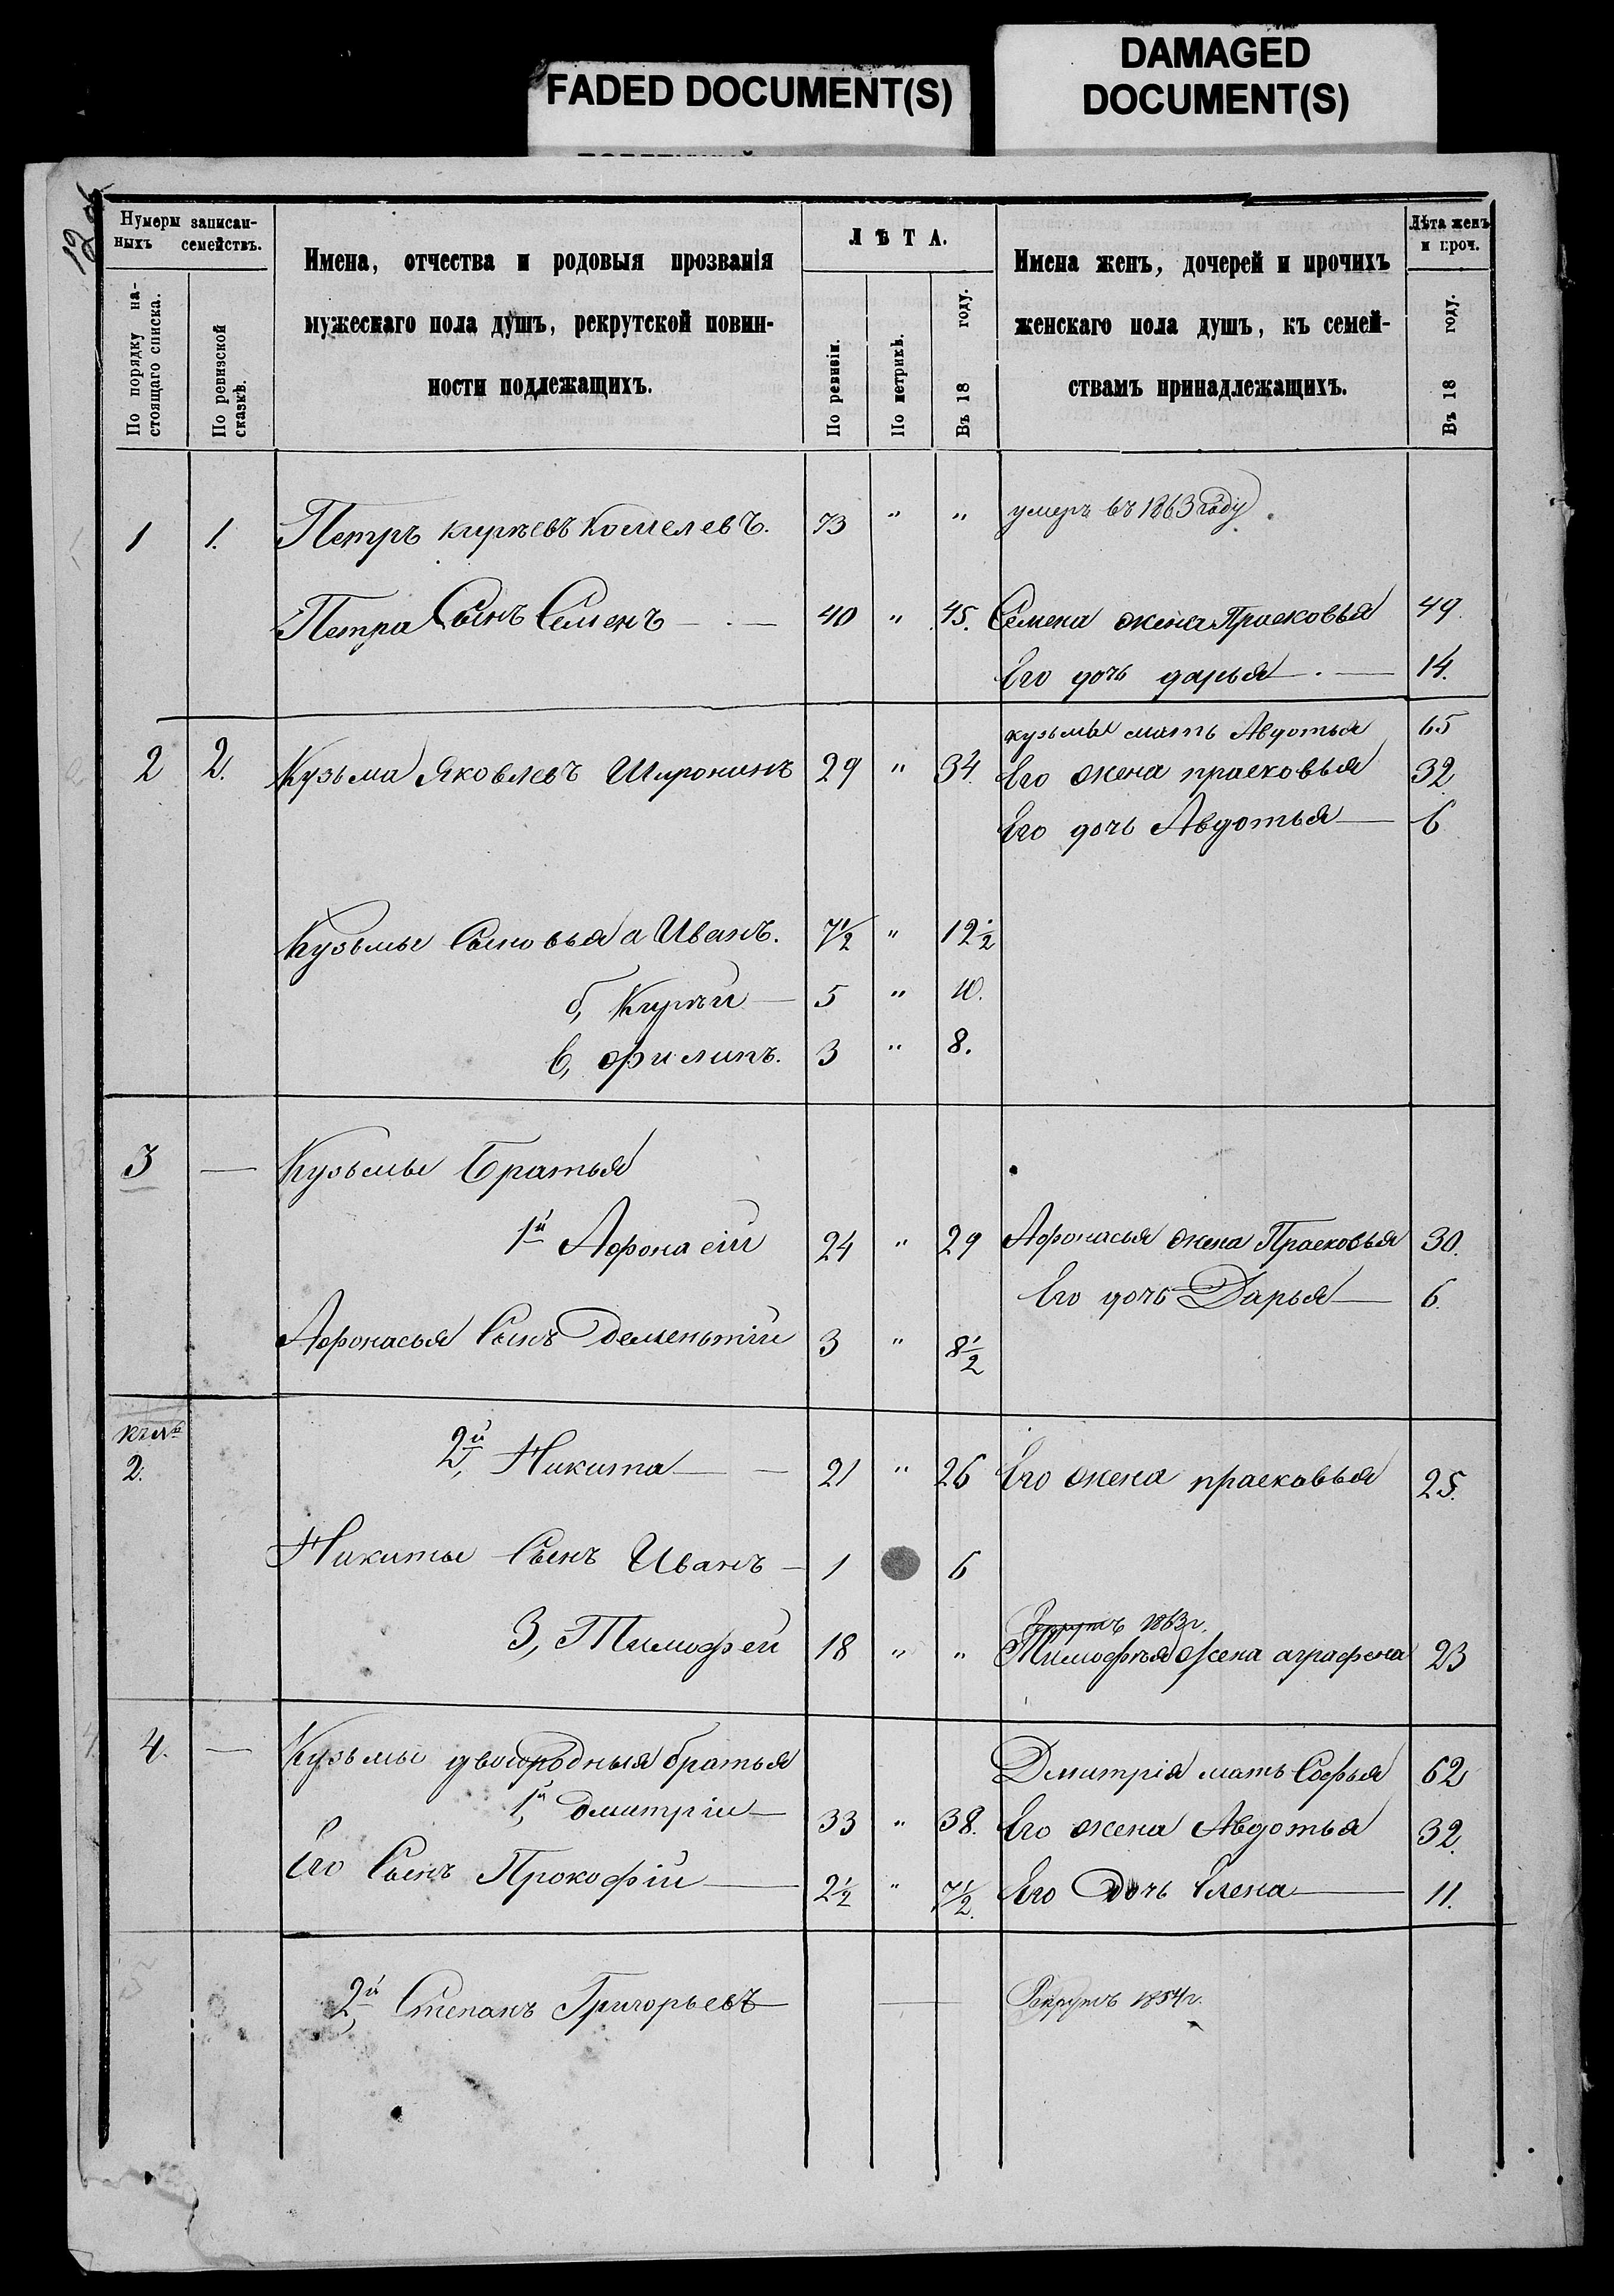 FADED DOCUMENT(S)
DAMAGED
DOCUMENT(S)
Нумеры записан-
ныхъ семействъ.
По порядку на-
стоящаго списка.
По ревизской
сказкѣ.
Имена, отчества и родовыя прозванія
мужескаго пола душъ, рекрутской повин-
ности подлежащихъ.
ЛѢТА.
По ревизіи.
По метрикѣ.
Въ 18 году.
Имена женъ, дочерей и прочихъ
женскаго пола душъ, къ семей-
ствамъ принадлежащихъ.
Лѣта женъ
и проч.
Въ 18 году.
1 1. Петръ кирѣевъ Кошелевъ. 73 " " умеръ въ 1863 году.
Петра Сынъ Семенъ — . — 40 " 45. Семена жена Прасковья 49.
Его дочь дарья — . — 14.
кузьмы мать Авдотья 65
2 2. Кузьма Яковлевъ Широнинъ 29 " 34. Его жена прасковья 32
Его дочь Авдотья — 6
Кузьмы Сыновья а Иванъ. 7½ " 12½
б, Кирѣй — 5 " 10.
в, Филипъ. 3 " 8.
3 — Кузьмы Братья
1й Афонасій 24 " 29 Афонасья жена Прасковья 30.
Его дочь Дарья — 6.
Афонасья Сынъ Деменьтій 3 " 8½
къ №
2.
2й, Никита — — 21 " 26 Его жена прасковья 25.
Никиты Сынъ Иванъ — 1 6
Рекрутъ 1863г.
3, Тимофей 18 " " Тимофѣя Жена аграфена 23
4. — Кузьмы двоюродныя братья
Дмитрія мать Софья 62
1й, Дмитрій — 33 " 38. Его жена Авдотья 32.
Его Сынъ Прокофій — 2½ " 7½. Его Дочь Елена — 11.
2й, Степанъ Григорьевъ — Рекрутъ 1854г.